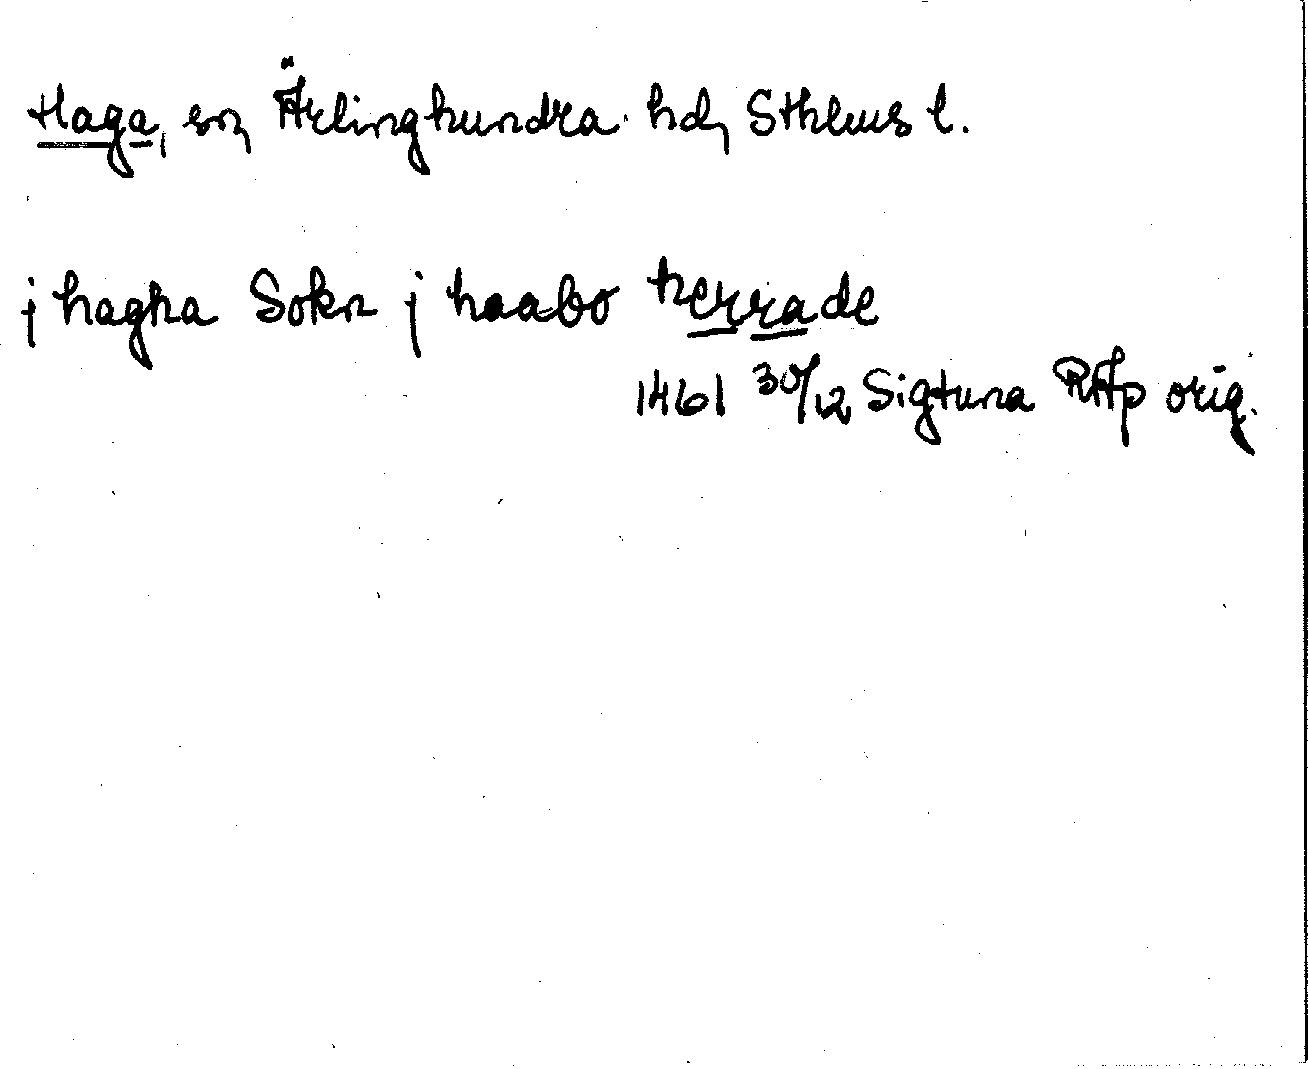 Haga, sn, Ärlinghundra hd, Sthlms l.
j hagha Sokn j haabo herrade
1461 30/12 Sigtuna RAp orig.